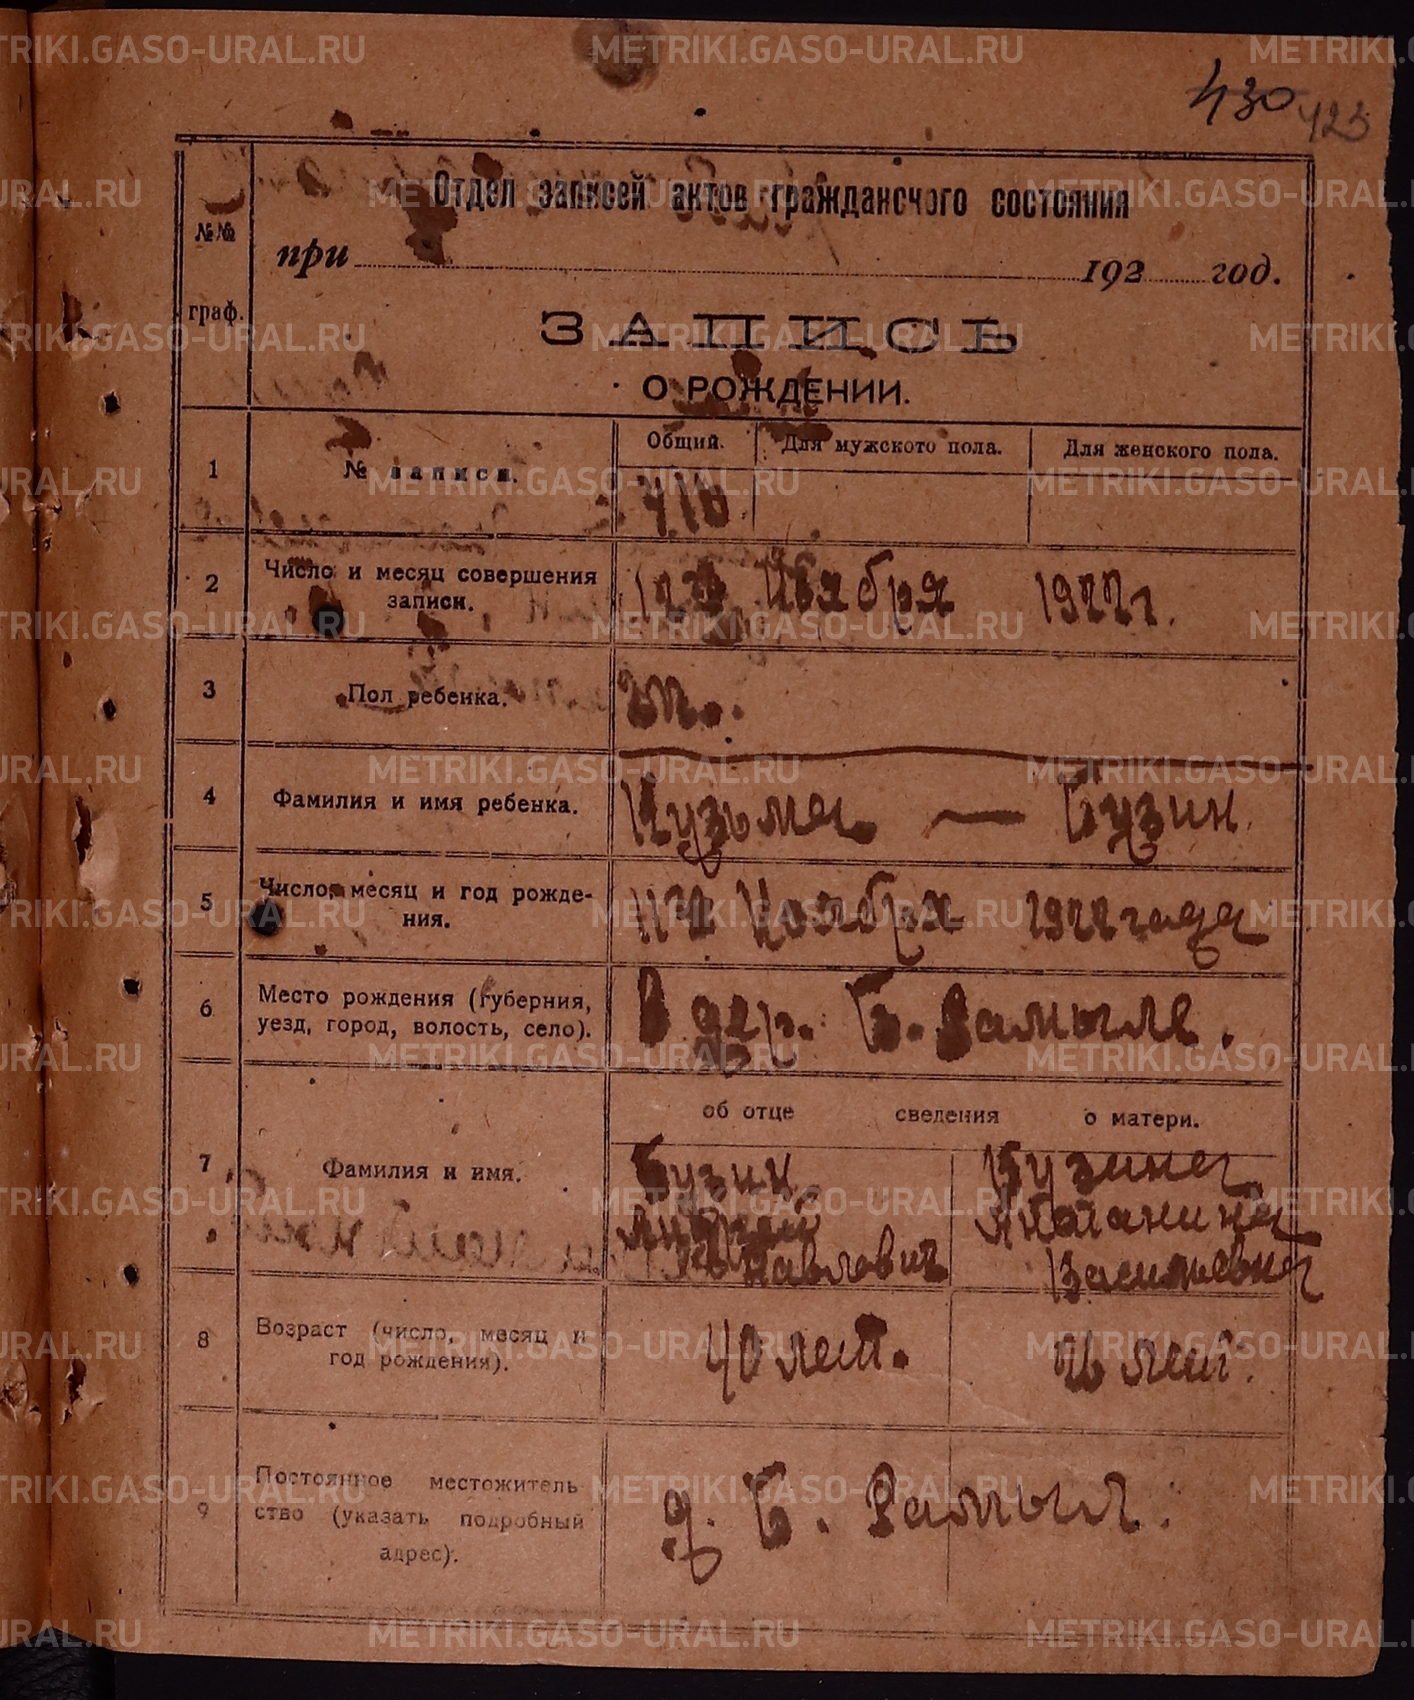 430 423
Отдел записей актов гражданского состояния
№№
при 192 год.
граф.
ЗАПИСЬ
О РОЖДЕНИИ.
Общий. Для мужского пола. Для женского пола.
1 № записи.
710
2 Число и месяц совершения записи.
Ноября 1922 г.
3 Пол ребенка.
м.
4 Фамилия и имя ребенка.
Кузьма — Бузин
5 Число, месяц и год рожде-
ния.
11го Ноября 1922 года
6 Место рождения (губерния,
уезд, город, волость, село).
В дер. Б. Рамыле.
об отце сведения о матери.
7 Фамилия и имя.
Бузин Бузина
Павлович Васильевна
8 Возраст (число, месяц и
год рождения).
40 лет. лет.
9 Постоянное местожитель
ство (указать подробный
адрес).
д. Б. Рамыл.
METRIKI.GASO-URAL.RU